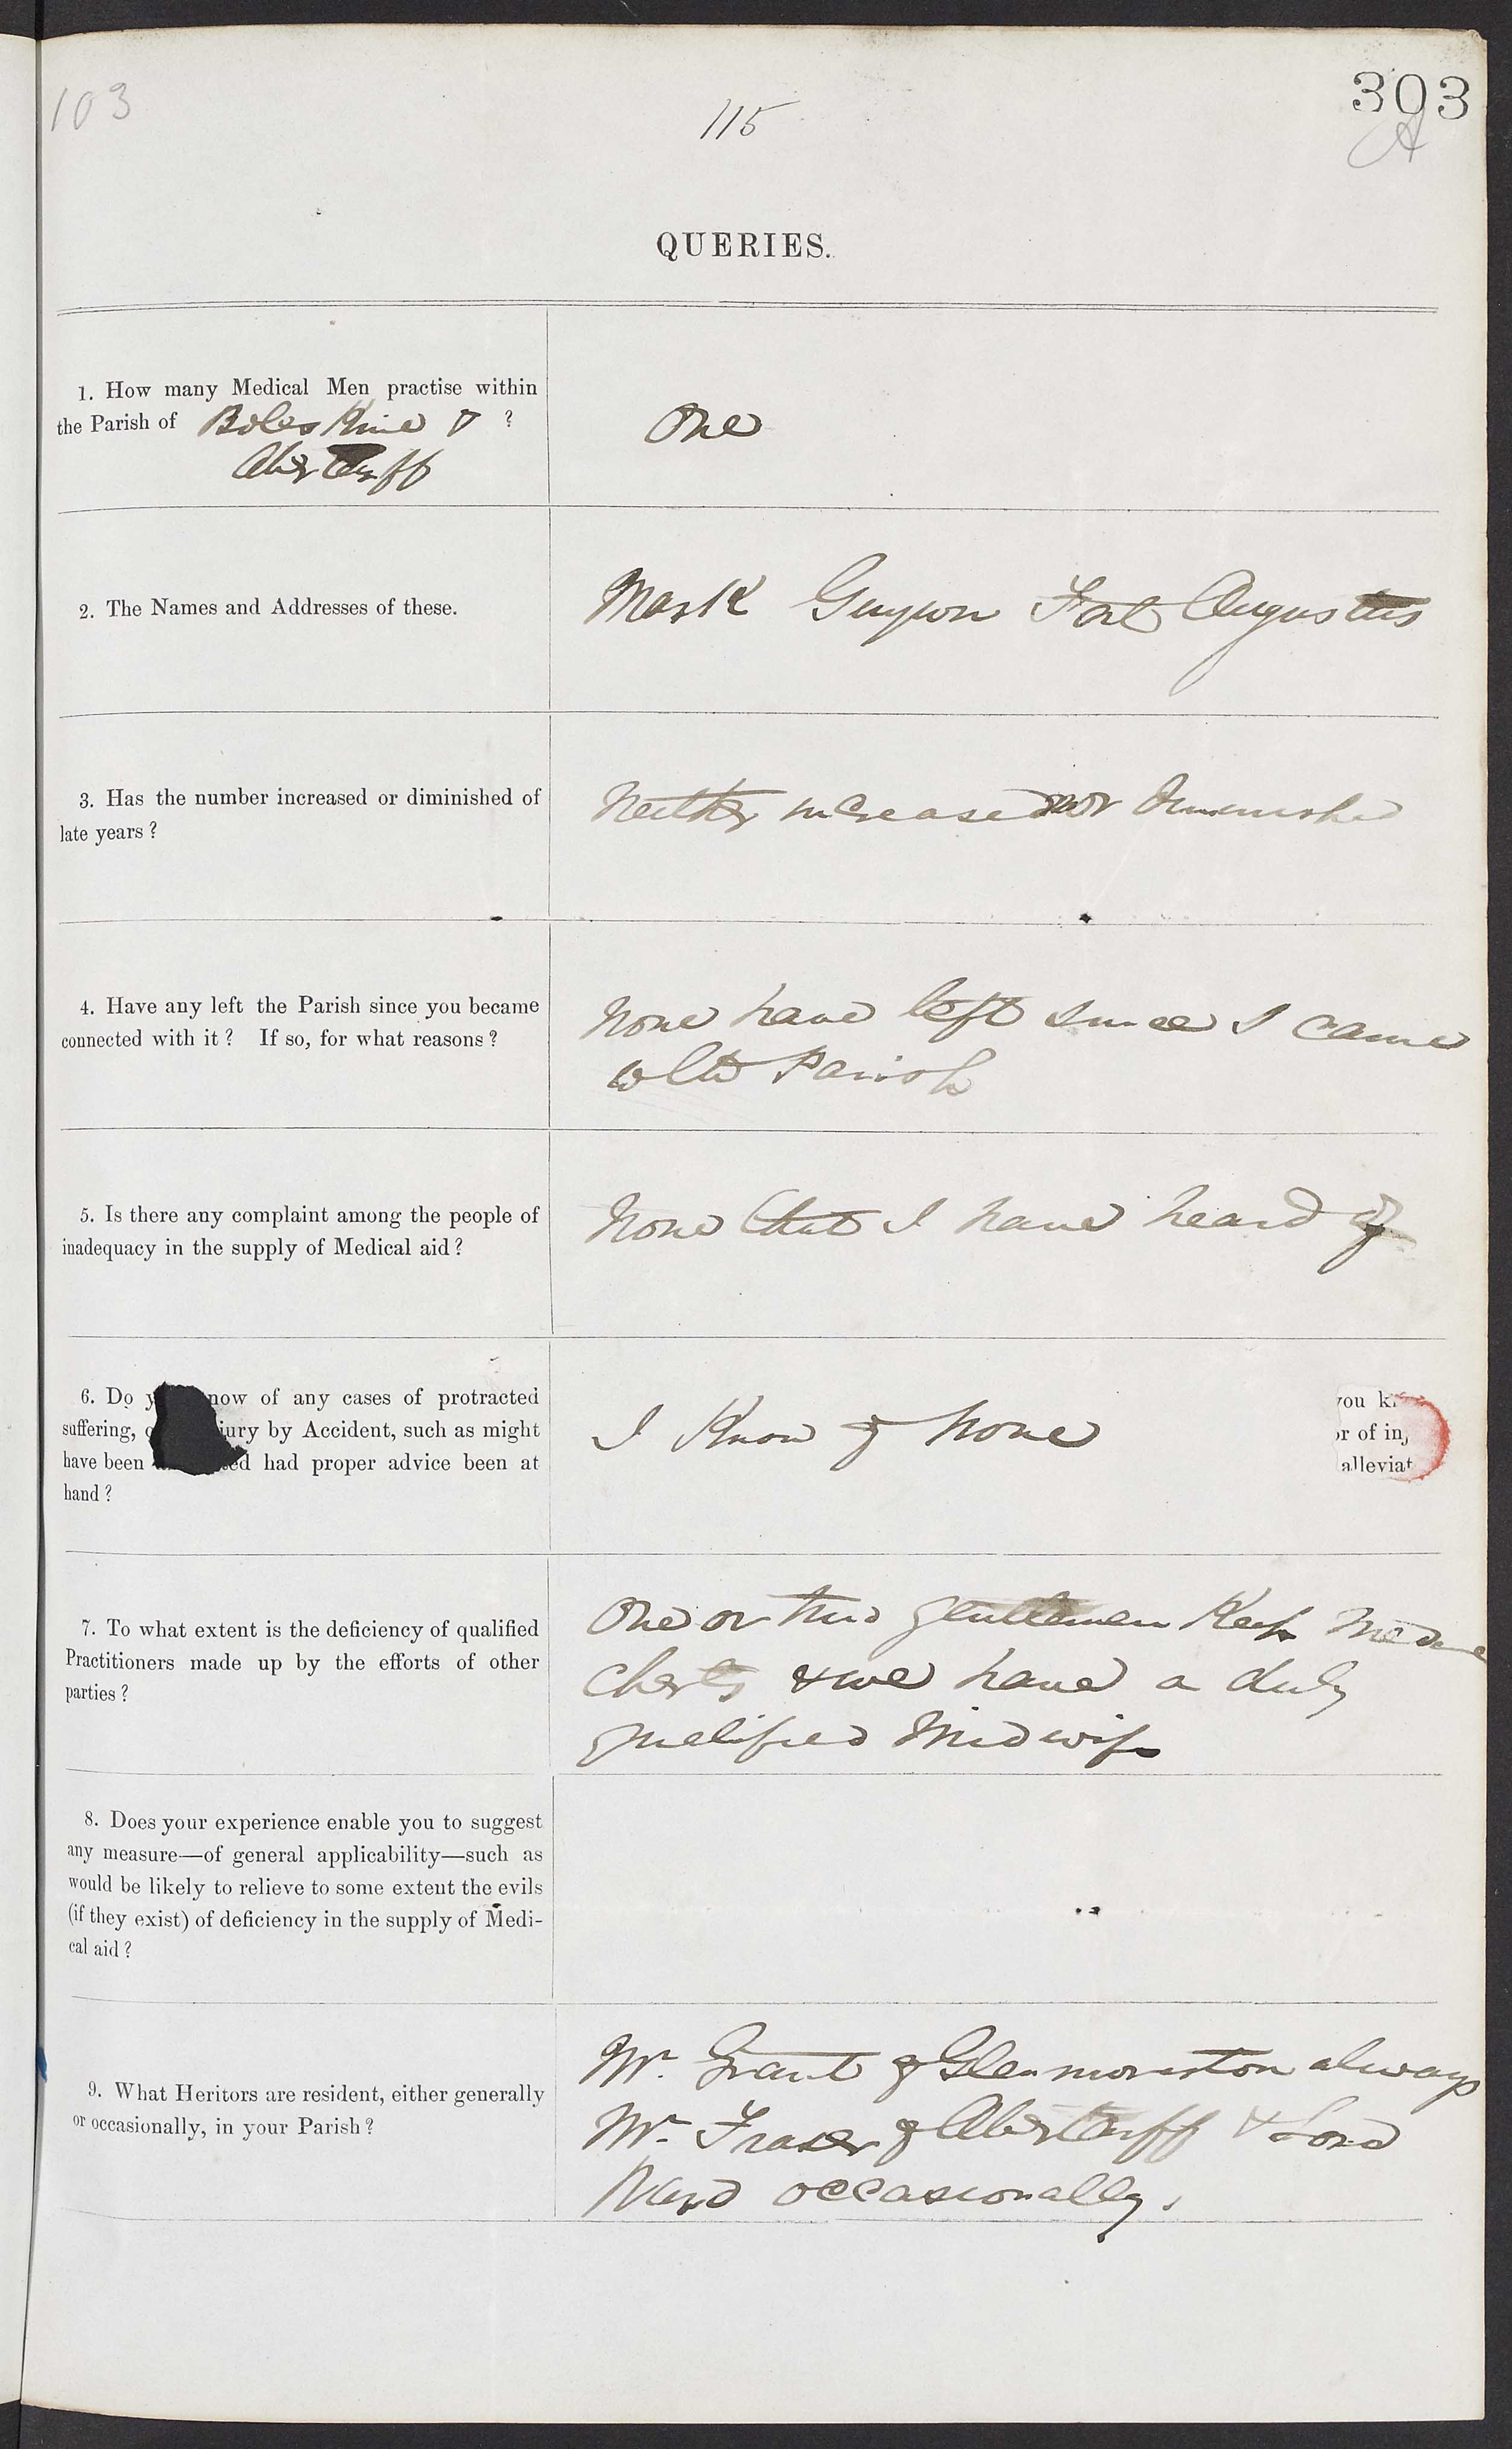 103
115
303
A
QUERIES.
1. How many Medical Men practise within
the Parish of Boleskine & ?
Abertarff
One
2. The Names and Addresses of these.
Mark Fort Augustus
3. Has the number increased or diminished of
late years ?
Neither increased nor diminished
4. Have any left the Parish since you became
connected with it ? If so, for what reasons ?
None have left since I came
to the Parish
5. Is there any complaint among the people of
inadequacy in the supply of Medical aid ?
None that I have heard of
6. Do y now of any cases of protracted
suffering, o jury by Accident, such as might
have been ed had proper advice been at
hand ?
I Know of none
you k
or of inj
alleviat
7. To what extent is the deficiency of qualified
Practitioners made up by the efforts of other
parties ?
One or two gentlemen Keep
Chests & we have a duly
qualified Midwife
8. Does your experience enable you to suggest
any measure—of general applicability—such as
would be likely to relieve to some extent the evils
(if they exist) of deficiency in the supply of Medi-
cal aid ?
9. What Heritors are resident, either generally
or occasionally, in your Parish ?
Mr. Grant of Glenmoriston always
Mr. Fraser of Abertarff & Lord
Ward occasionally.